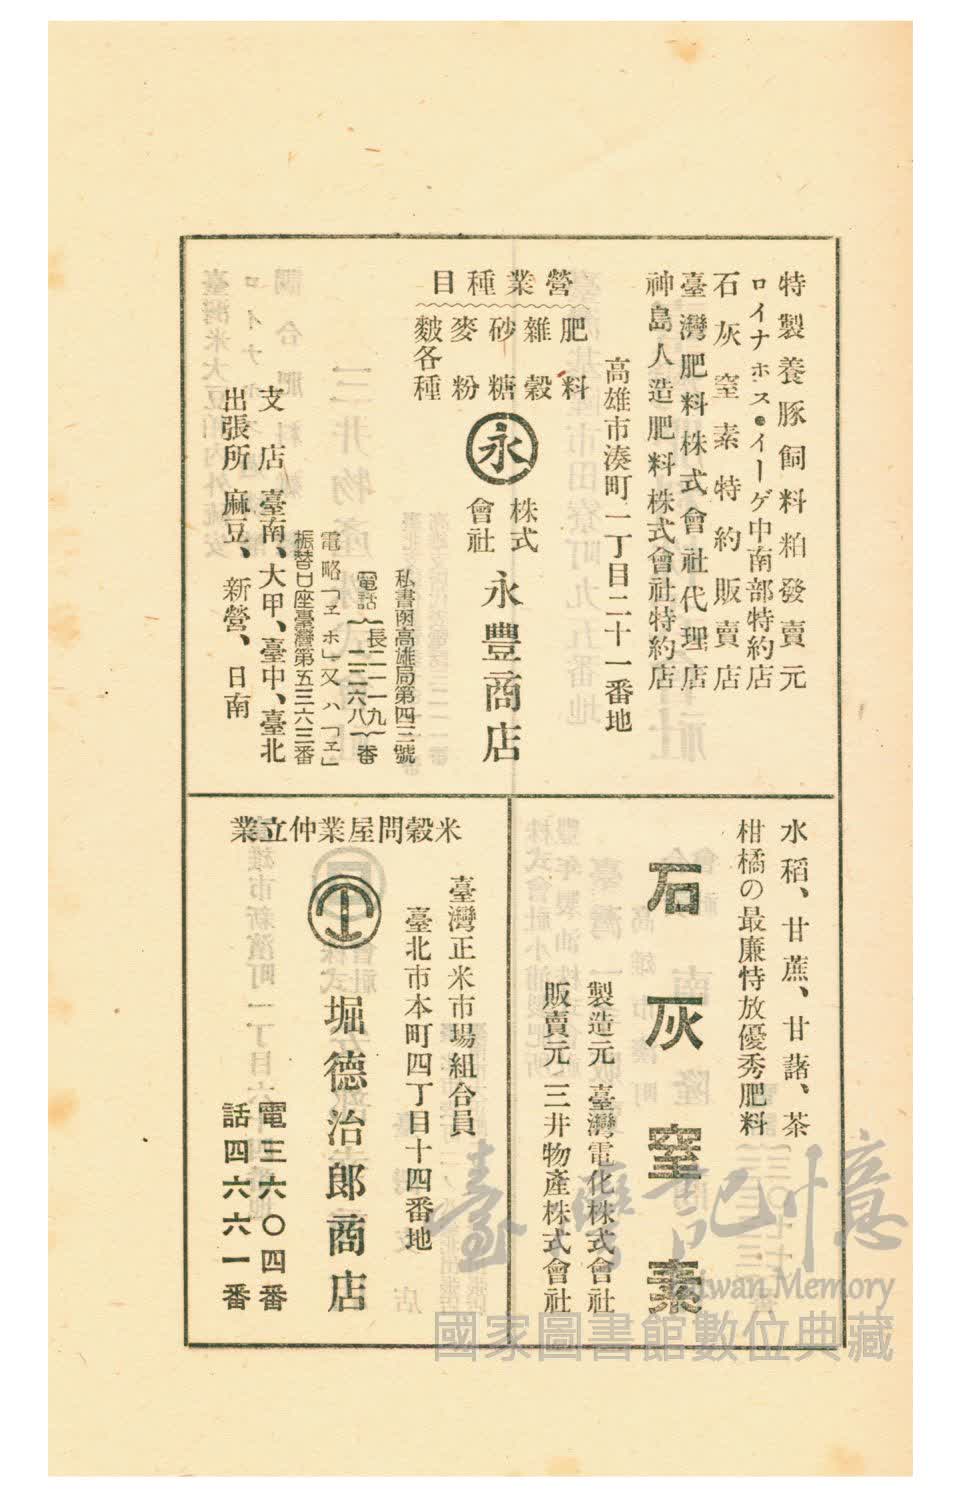 特製養豚飼料粕發賣元
ロイナホス・イーゲ中南部特約店
石灰窒素特約販賣店
臺灣肥料株式會社代理店
神島人造肥料株式會社特約店
高雄市湊町一丁目二十一番地
營業種目
肥料
雜穀
砂糖
麥粉
麩各種
永
株式會社
永豐商店
私書凾高雄局第四三號
電話 長二一一九 二二六八 番
電略「ヱホ」又ハ「ヱ」
振替口座臺灣第五三六三番
支店 臺南、大甲、臺中、臺北
出張所 麻豆、新營、日南
水稻、甘蔗、甘藷、茶
柑橘の最廉特效優秀肥料
石灰窒素
製造元 臺灣電化株式會社
販賣元 三井物產株式會社
米穀問屋業仲立業
臺灣正米市場組合員
臺北市本町四丁目十四番地
堀德治郎商店
電話 三六〇四番
四六六一番
臺灣記憶
Taiwan Memory
國家圖書館數位典藏